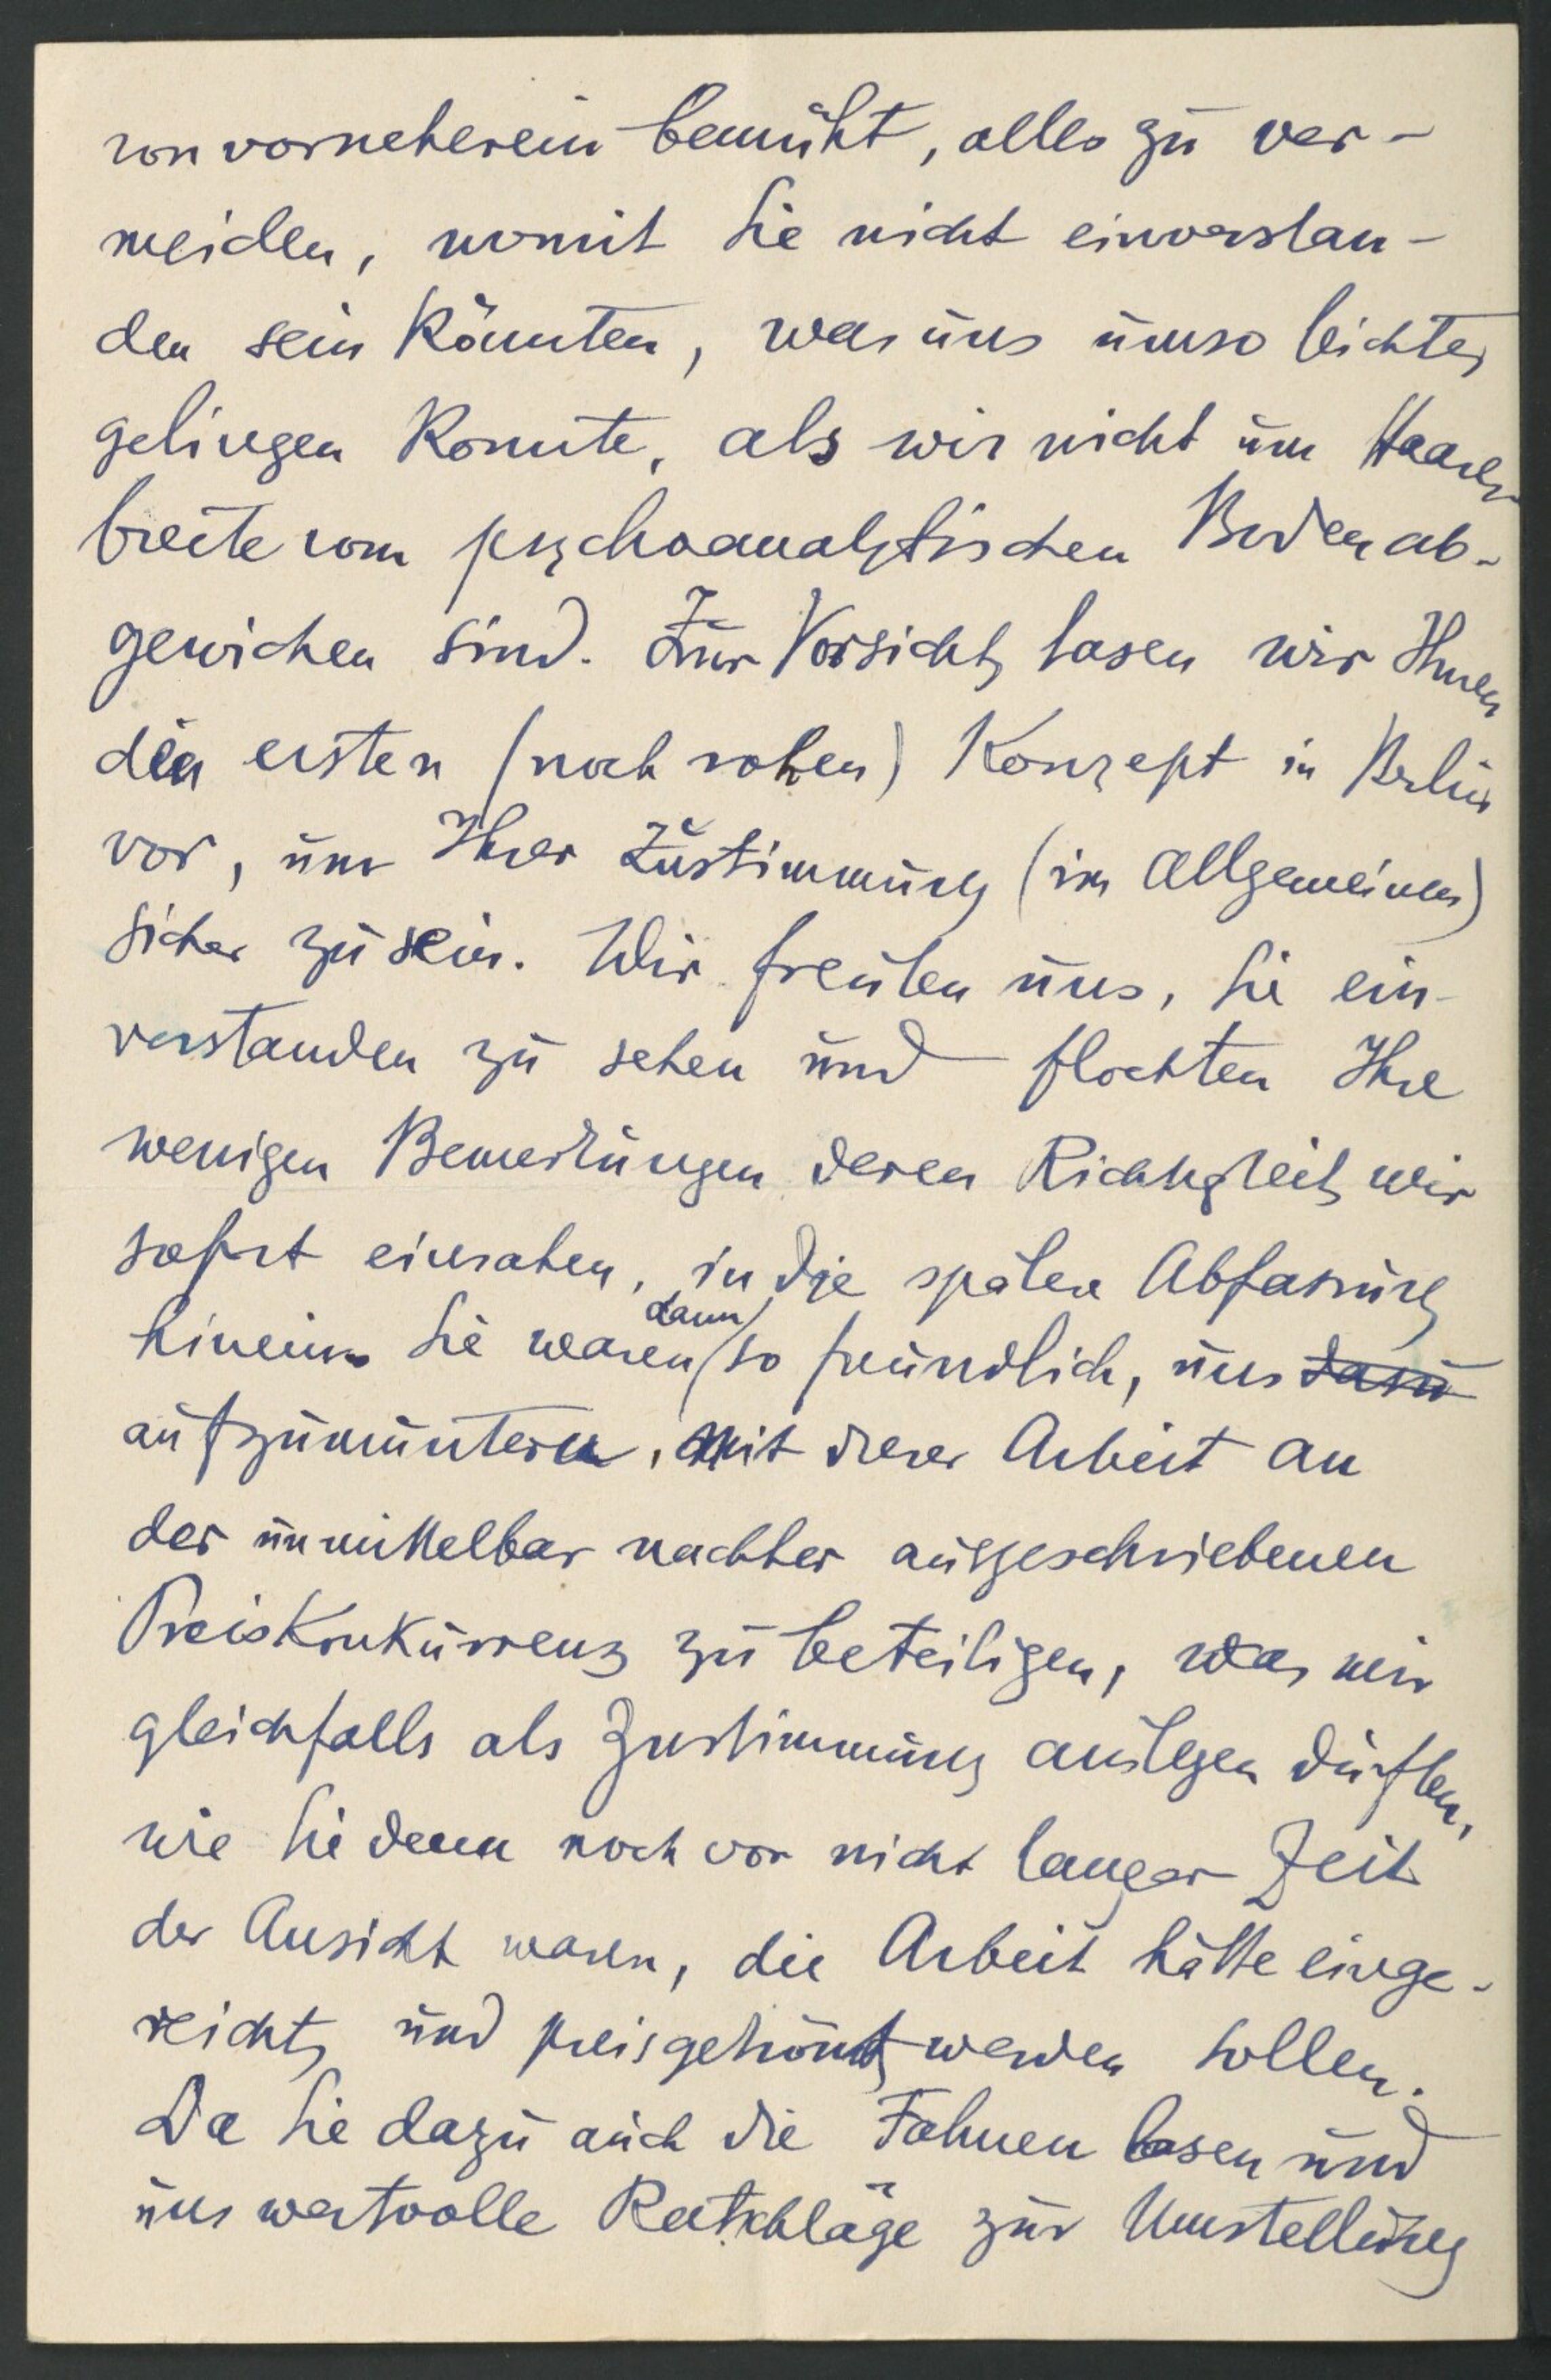 von vorneherein bemüht, alles zu ver-
meiden, womit Sie nicht einverstan-
den sein könnten, was uns umso leichter
gelingen konnte, als wir nicht um Haares-
breite vom psychoanalytischen Boden ab-
gewichen sind. Zur Vorsicht lasen wir Ihnen
den ersten (noch rohen) Konzept in Berlin
vor, um Ihrer Zustimmung (im Allgemeinen)
sicher zu sein. Wir freuten uns, Sie ein-
verstanden zu sehen und flochten Ihre
wenigen Bemerkungen deren Richtigkeit wir
sofort einsahen, in die spätere Abfassung
hinein. Sie waren dann so freundlich, uns dazu
aufzumuntern, mit dieser Arbeit an
der unmittelbar nachher ausgeschriebenen
Preiskonkurrenz zu beteiligen, was wir
gleichfalls als Zustimmung auslegen durften,
wie Sie denn noch vor nicht langer Zeit
der Ansicht waren, die Arbeit hätte einge-
reicht und preisgekrönt werden sollen.
Da Sie dazu auch die Fahnen lasen und
uns wertvolle Ratschläge zur Umstellung